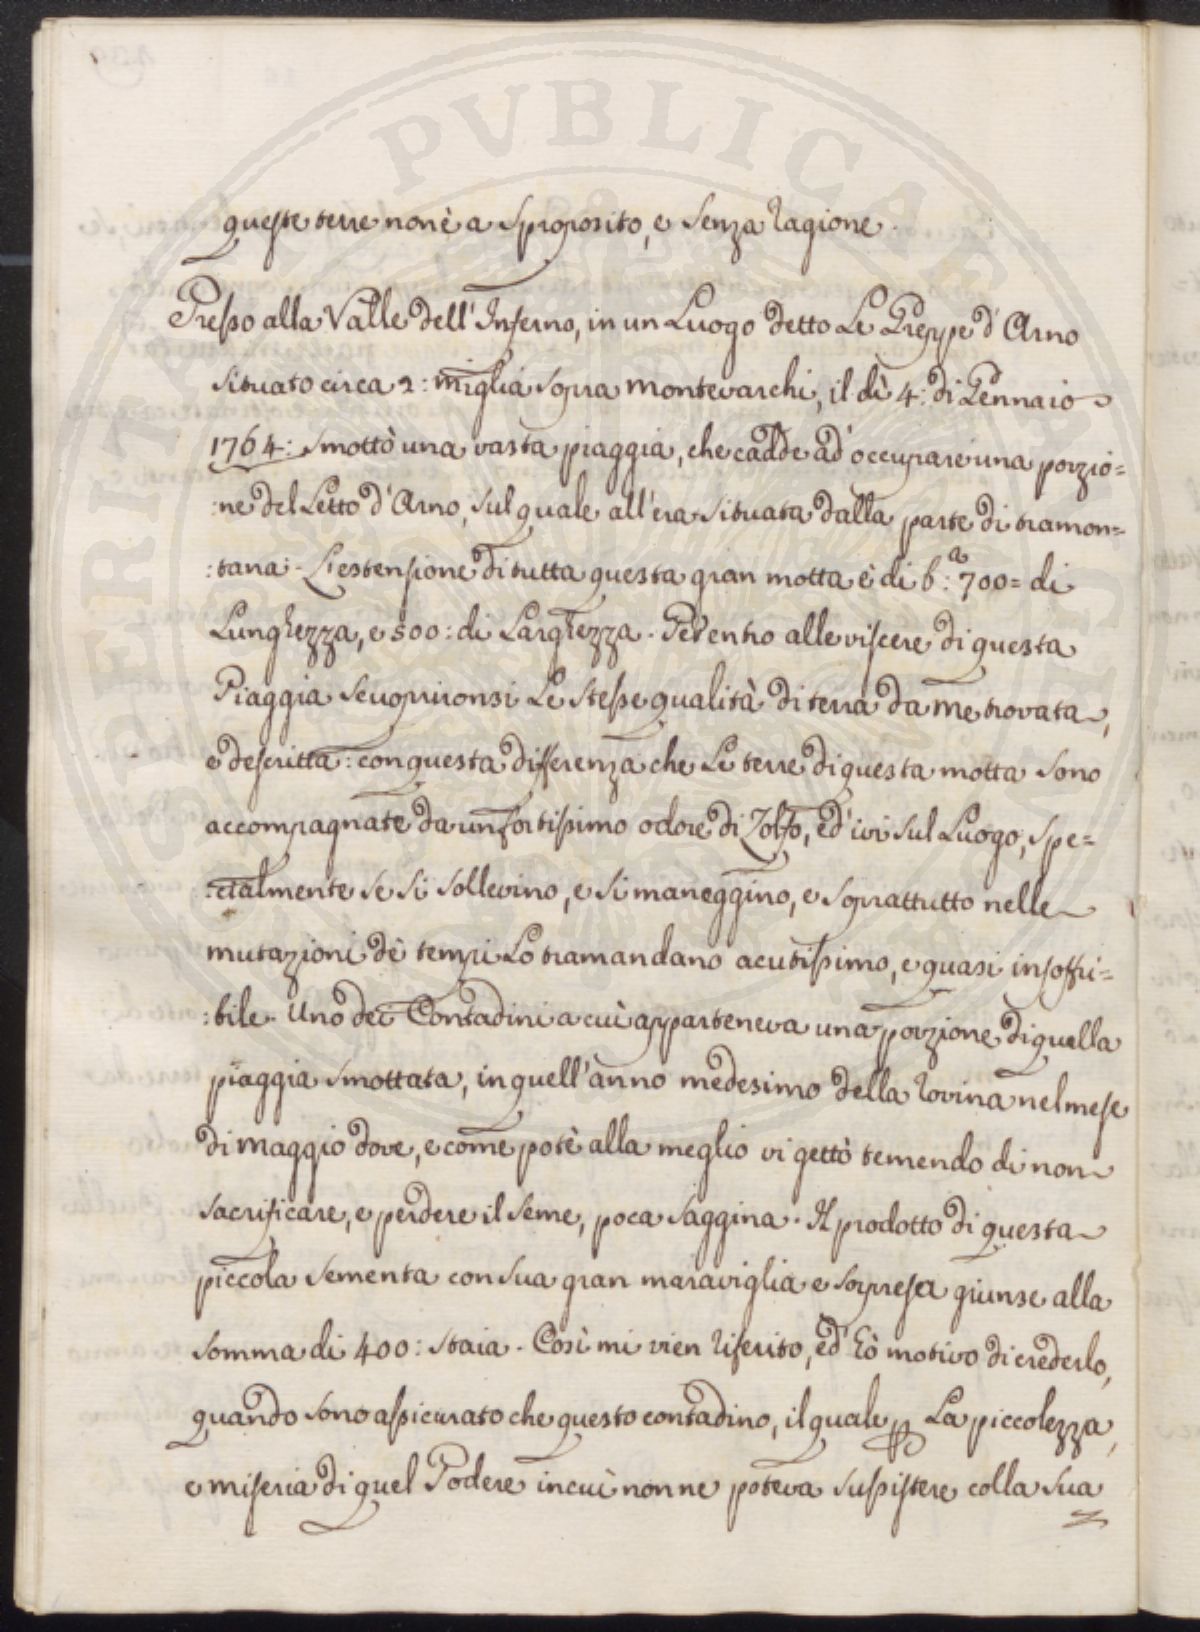 queste terre non è a sproposito, e senza ragione.
Presso alla Valle dell'Inferno, in un Luogo detto Le Greppe d'Arno
situato circa 2: miglia sopra Montevarchi, il dì 4: di Gennaio
1764: smottò una vasta piaggia, che cadde ad occupare una porzio=
:ne del Letto d'Arno, sul quale all'era situata dalla parte di tramon=
:tana. L'estensione di tutta questa gran motta è di b:a 700= di
Lunghezza, e 500: di Larghezza. Per entro alle viscere di questa
Piaggia scuoprironsi le stesse qualità di terra da me trovata,
e descritta: con questa differenza che Le terre di questa motta sono
accompagnate da un fortissimo odore di Zolfo, ed ivi sul Luogo, spe=
:cialmente se si sollevino, e si maneggino, e soprattutto nelle
mutazioni dè tempi Lo tramandano acutissimo, e quasi insoffri=
:bile. Uno dei Contadini a cui apparteneva una porzione di quella
piaggia smottata, in quell'anno medesimo della rovina nel mese
di Maggio dove, e come potè alla meglio vi gettò temendo di non
sacrificare, e perdere il seme, poca saggina. Il prodotto di questa
piccola sementa con sua gran maraviglia e sorpresa giunse alla
somma di 400: staia. Così mi vien riferito, ed hò motivo di crederlo,
quando sono assicurato che questo contadino, il quale p La piccolezza,
e miseria di quel Podere in cui non ne poteva sussistere colla sua
PERITAT PUBLICAE